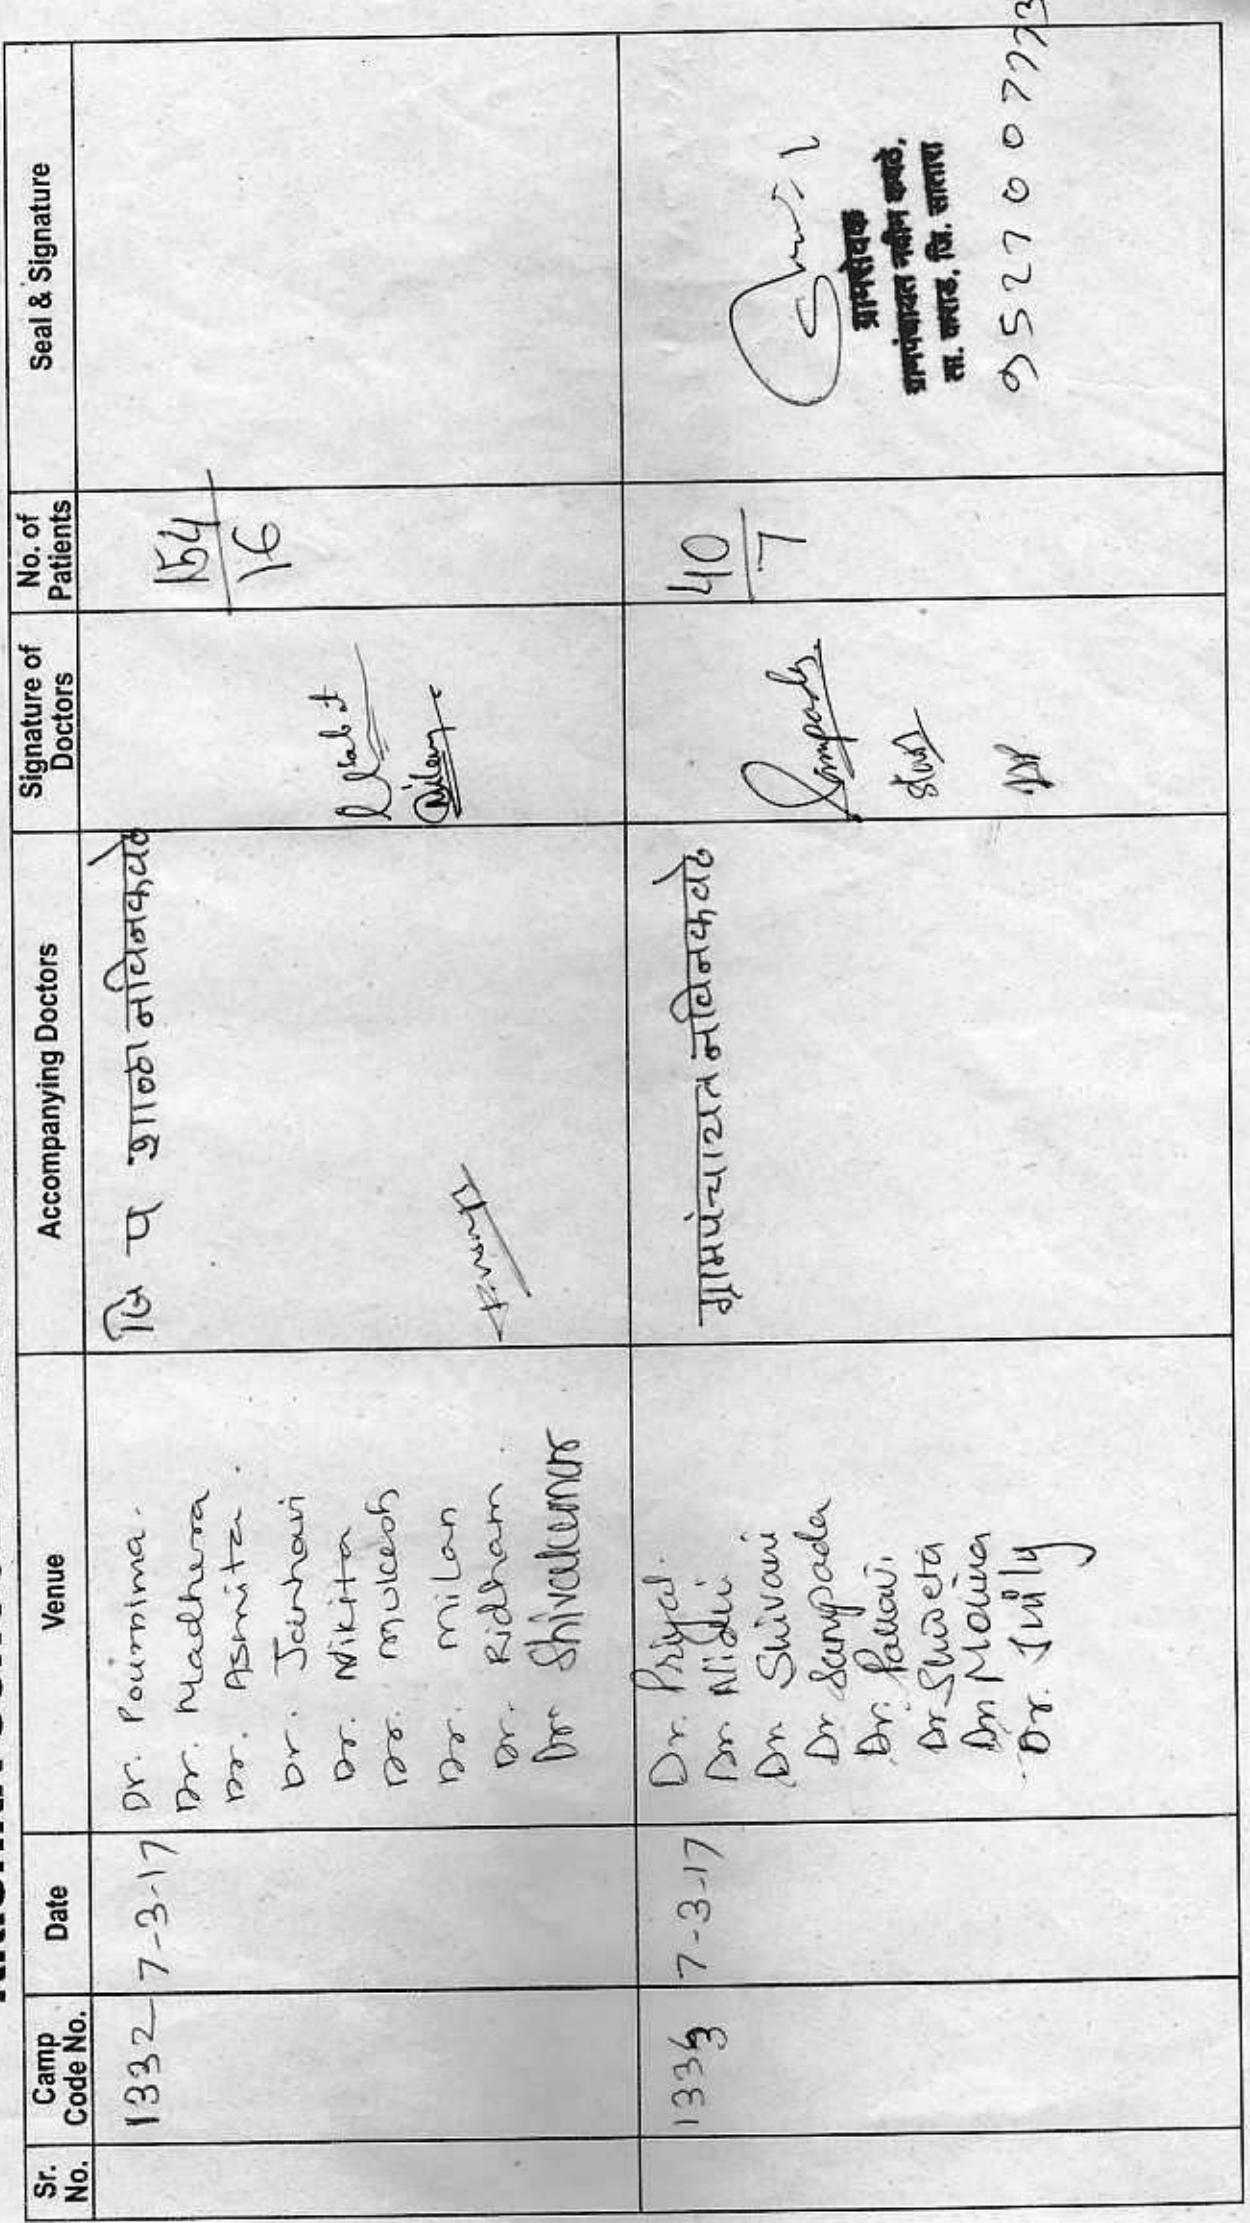 Sr. No.
Camp Code No.
Date
Venue
Accompanying Doctors
Signature of Doctors
No. of Patients
Seal & Signature
1332
7-3-17
Dr. Pournima.
Dr. Madhura
Dr. Asmita.
Dr. Janhavi
Dr. Nikita
Dr. Mukesh
Dr. Milan
Dr. Ridham.
Dr Shivakumar
जि प शाळा नविनकवठे
154
16
1333
7-3-17
Dr. Priyal.
Dr. Nidhi.
Dr. Shivani
Dr. Sampada
Dr. Pallavi.
Dr. Shweta
Dr
Dr.
ग्रामपंचायत नविनकवठे
Sampada.
40
7
ग्रामसेवक
ग्रामपंचायत नवीन कवठे,
ता. कराड, जि. सातारा